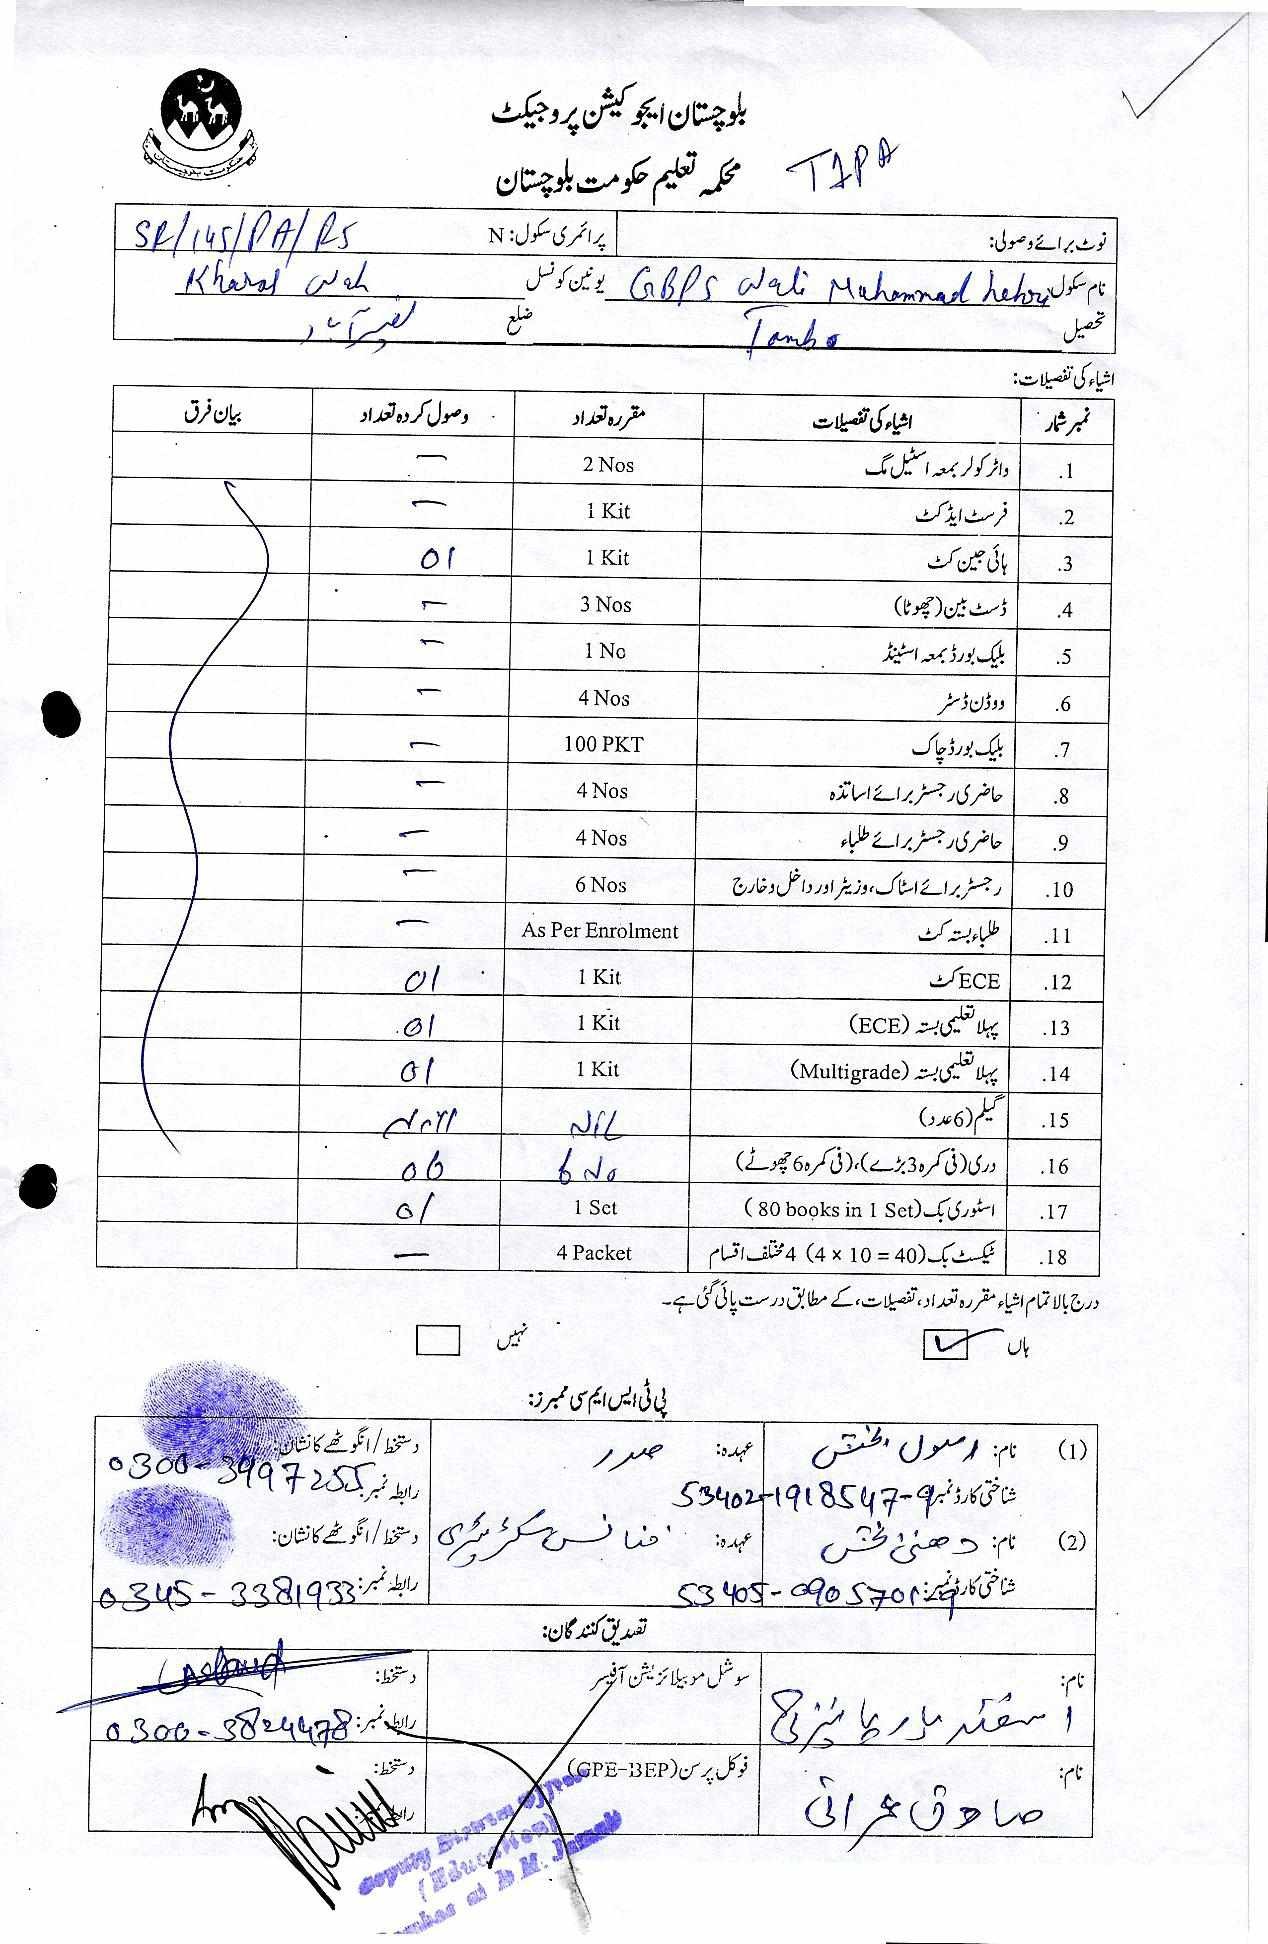 بلوچستان ایجوکیشن پروجیکٹ
محکمہ تعلیم حکومت بلوچستان TIPA
نوٹ برائے وصولی: پرائمری سکول: N SR/145/PA/RS
نام سکول GBPS Wali Muhammad Lehri یونین کونسل Kharal Wah
تحصیل Tambo ضلع نصیر آباد
اشیاء کی تفصیلات:
نمبر شمار اشیاء کی تفصیلات مقررہ تعداد وصول کردہ تعداد بیان فرق
1. واٹر کولر بمعہ اسٹیل مگ 2 Nos —
2. فرسٹ ایڈ کٹ 1 Kit —
3. ہائی جین کٹ 1 Kit 01
4. ڈسٹ بین (چھوٹا) 3 Nos —
5. بلیک بورڈ بمعہ اسٹینڈ 1 No —
6. ووڈن ڈسٹر 4 Nos —
7. بلیک بورڈ چاک 100 PKT —
8. حاضری رجسٹر برائے اساتذہ 4 Nos —
9. حاضری رجسٹر برائے طلباء 4 Nos —
10. رجسٹر برائے اسٹاک، وزیٹر اور داخل و خارج 6 Nos —
11. طلباء بستہ کٹ As Per Enrolment —
12. ECE کٹ 1 Kit 01
13. پہلا تعلیمی بستہ (ECE) 1 Kit 01
14. پہلا تعلیمی بستہ (Multigrade) 1 Kit 01
15. گیلم (6 عدد) NIL
16. دری (فی کمرہ 3 بڑے)، (فی کمرہ 6 چھوٹے) 6 No 06
17. اسٹوری بک (80 books in 1 Set) 1 Set 01
18. ٹیکسٹ بک (4 × 10 = 40) 4 مختلف اقسام 4 Packet —
درج بالا تمام اشیاء مقررہ تعداد، تفصیلات، کے مطابق درست پائی گئی ہے۔
ہاں نہیں
پی ٹی ایس ایم سی ممبرز:
(1) نام: رسول بخش عہدہ: صدر دستخط/انگوٹھے کا نشان:
شناختی کارڈ نمبر: 53402-1918547-9 رابطہ نمبر: 0300-3997255
(2) نام: دھنی بخش عہدہ: فنانس سکرٹیری دستخط/انگوٹھے کا نشان:
شناختی کارڈ نمبر: رابطہ نمبر: 0345-3381933
تصدیق کنندگان:
نام: سوشل موبیلائزیشن آفیسر دستخط:
رابطہ نمبر: 0300-3824478
نام: صادق عمرانی فوکل پرسن (GPE-BEP) دستخط:
رابطہ
Deputy District Officer
(Education)
at D M. Jamali